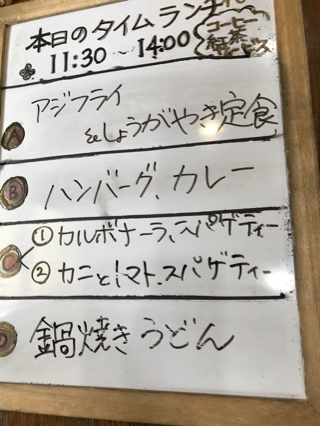 本日のタイムランチ
11:30 ~ 14:00
コーヒー
紅茶
サービス
A アジフライ
&しょうがやき定食
B ハンバーグ、カレー
C ① カルボナーラ、スパゲティー
② カニとトマト、スパゲティー
鍋焼きうどん